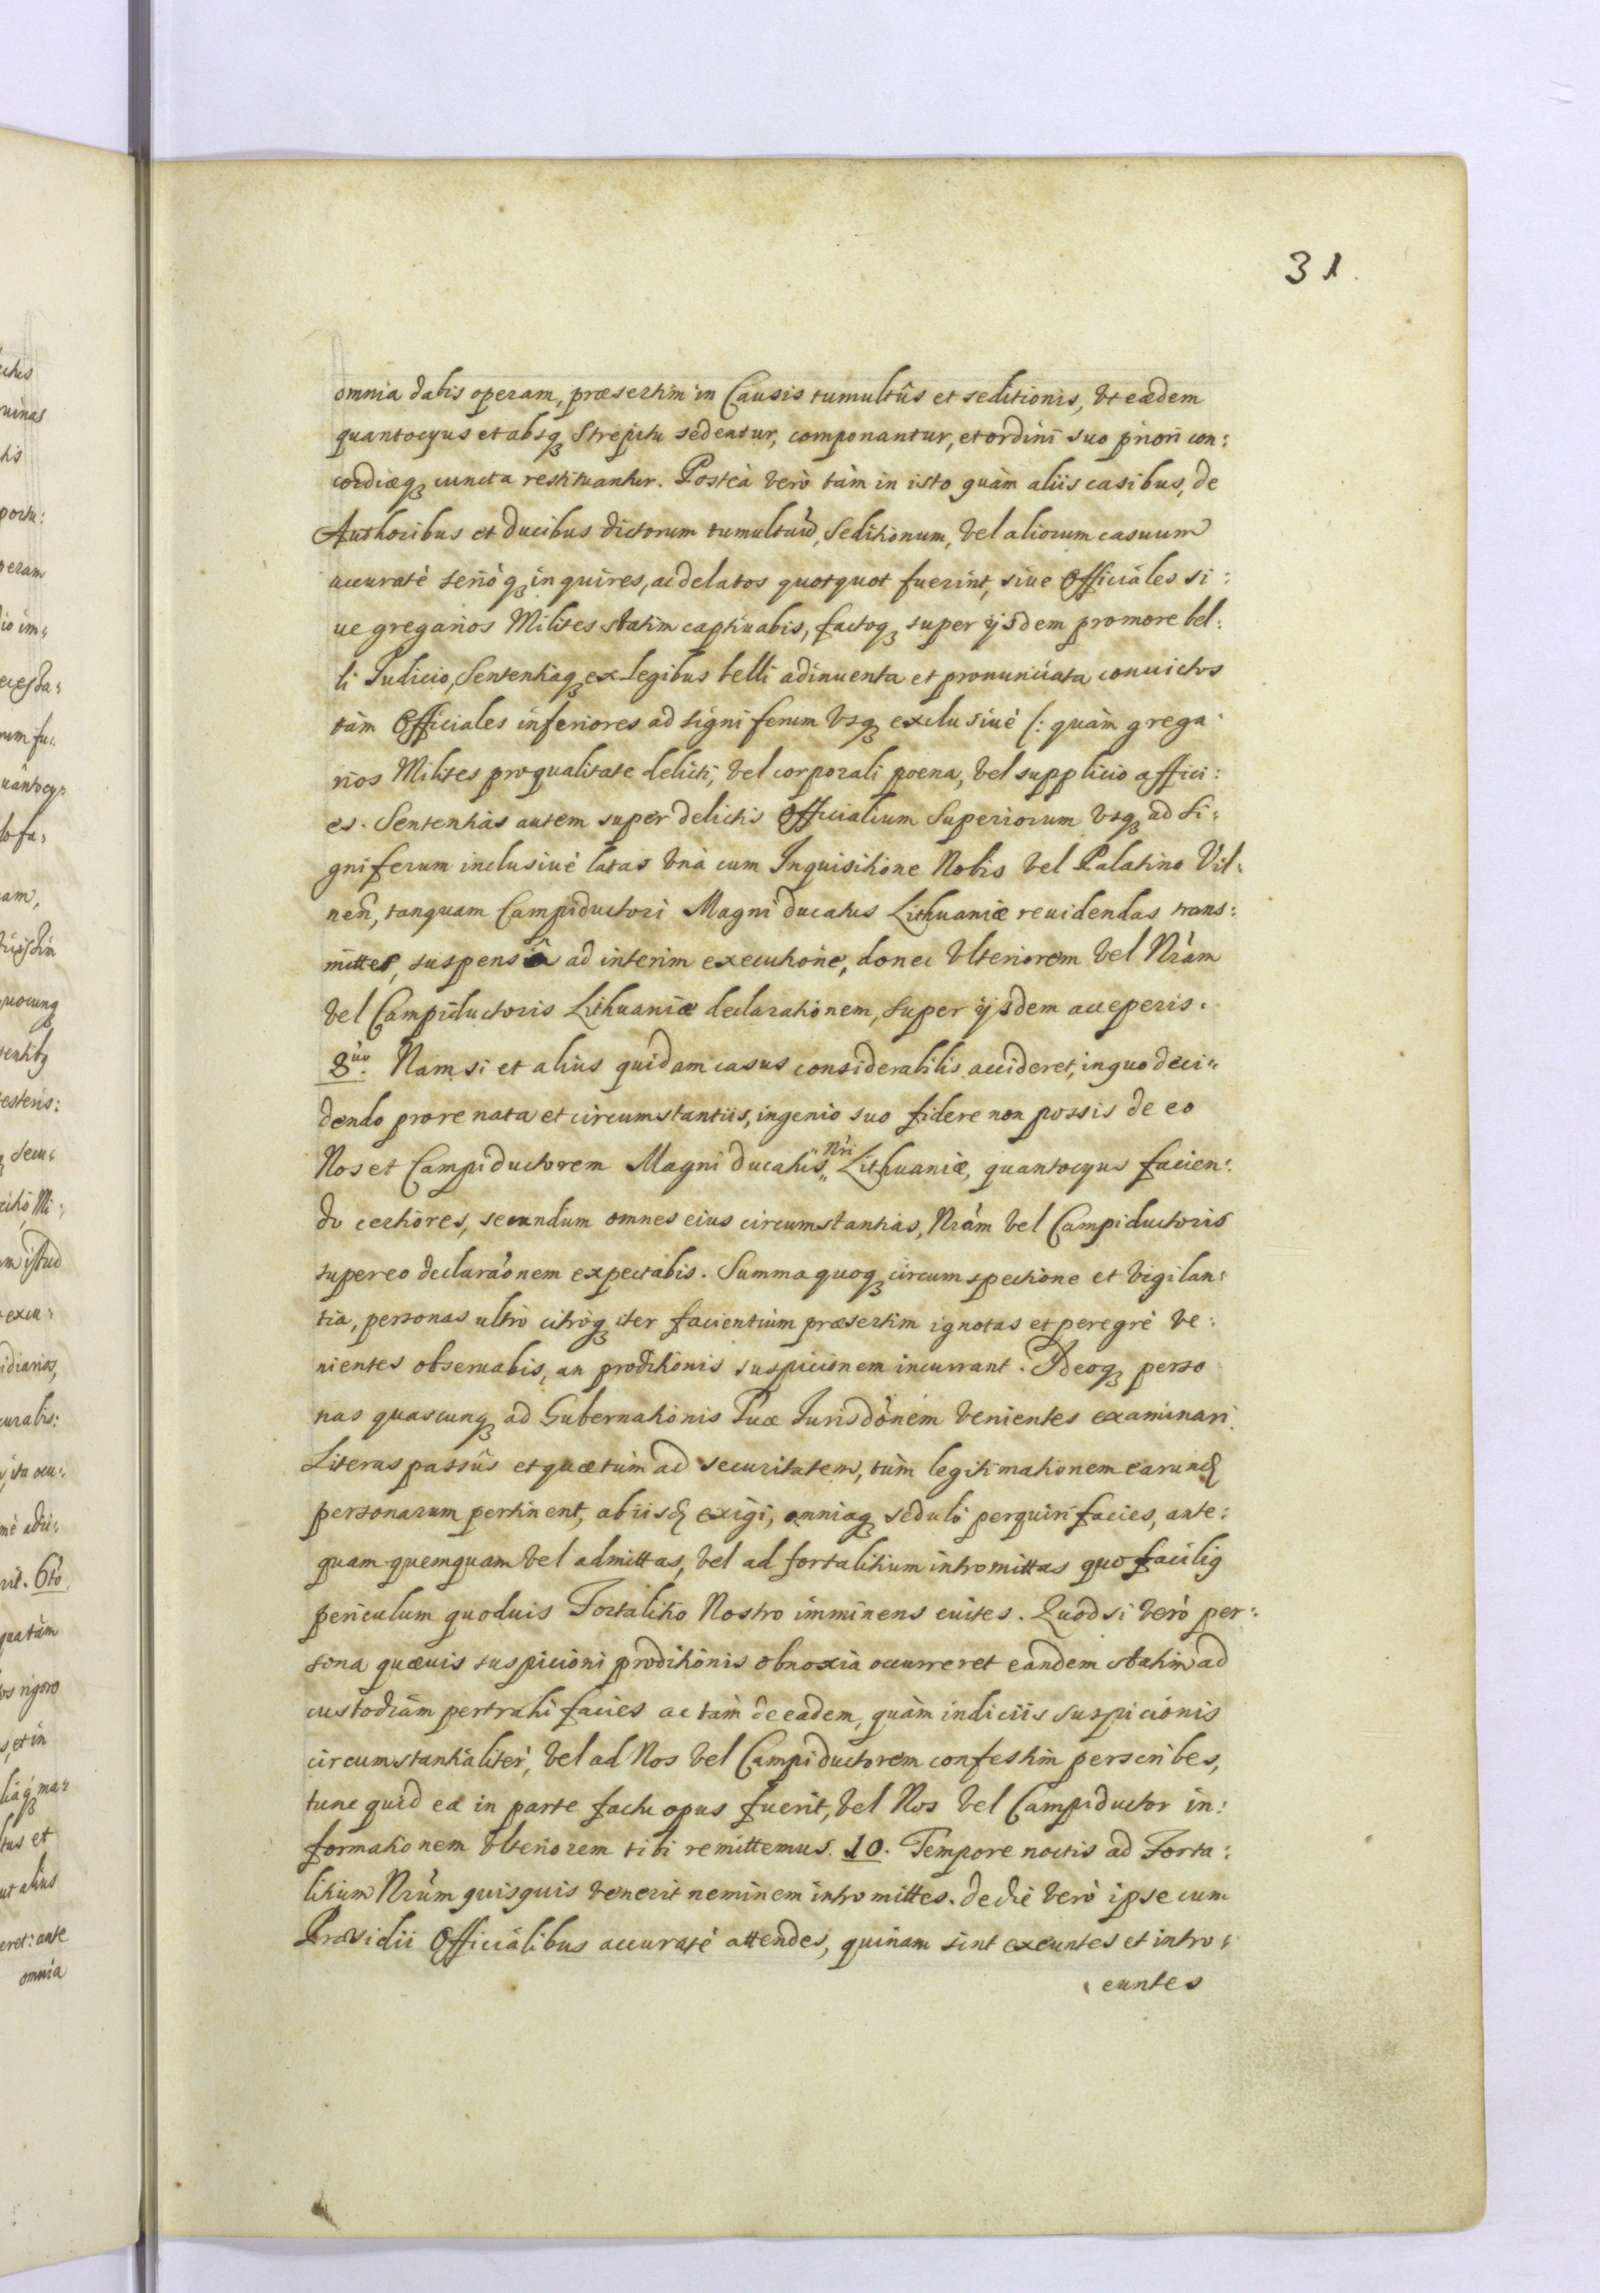 31
omnia dabis operam, præsertim in Causis tumultûs et seditionis, Vt eædem
quantocyus et absq3 Strepitu sedentur, componantur, et ordini suo priori con:
cordiæq3 cuncta restituantur. Posteà Verò tàm in isto quàm aliis casibus, de
Authoribus et ducibus dictorum tumultuũ, Seditionum, Vel aliorum casuum
accuratè serióq3 inquires, ac delatos quotquot fuerint, siue Officiales si:
ue gregarios Milites statim captiuabis, factoq3 super ijsdem pro more bel:
li Judicio, Sententiaq3 ex Legibus belli adinuenta et pronunciata conuictos
tàm Officiales inferiores ad signiferum Vsq3 exclusiuè /: quàm grega:
rios Milites pro qualitate delicti, Vel corporali poena, Vel supplicio affici:
es. Sententias autem super delictis Officialium Superiorum Vsq3 ad Si:
gniferum inclusiuè latas Vnà cum Inquisitione Nobis Vel Palatino Vil:
nen̄, tanquam Campiductori Magni ducatus Lithuaniæ reuidendas trans:
mittes, suspensâ ad interim executione, donec Vlteriorem Vel Nr̃am
Vel Campiductoris Lithuaniæ declarationem, super ijsdem acceperis.
8uo. Nam si et alius quidam casus considerabilis accideret, in quo deci:
dendo pro re nata et circumstantiis, ingenio suo fidere non possis de eo
Nos et Campiductorem Magni ducatus Nr̃i Lithuaniæ, quantocyus facien:
do certiores, secundum omnes eius circumstantias, Nr̃am Vel Campiductoris
super eo declarãonem expectabis. Summa quoq3 circumspectione et Vigilan:
tia, personas ultrò citròq3 iter facientium præsertim ignotas et peregrè Ve:
nientes obseruabis, an proditionis suspicionem incurrant. Ideoq3 perso
nas quascunq3 ad Gubernationis Tuæ Jurisdõnem Venientes examinari
Literas passûs et quæ tùm ad securitatem, tùm legitimationem earund
personarum pertinent, ab iisd exigi, omniaq3 sedulò perquiri facies, ante:
quam quemquam Vel admittas, Vel ad fortalitium intromittas quo facilig
periculum quoduis Fortalitio Nostro imminens euites. Quod si Verò per:
sona quæuis suspicioni proditionis obnoxia occurreret eandem statim ad
custodiam pertrahi facies ac tàm de eadem, quàm indiciis suspicionis
circumstantialiter, Vel ad Nos Vel Campiductorem confestim perscribes,
tunc quid ea in parte factu opus fuerit, Vel Nos Vel Campiductor in:
formationem Vlteriorem tibi remittemus. 10. Tempore noctis ad Forta:
litium Nr̃um quisquis Venerit neminem intromittes. de die Verò ipse cum
Præsidii Officialibus accuratè attendes, quinam sint exeuntes et intro:
euntes